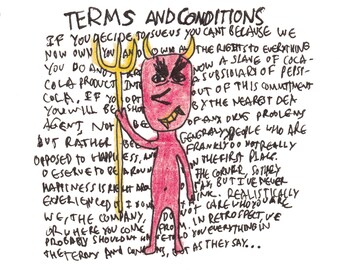 TERMS AND CONDITIONS
IF YOU DECIDE TO SUE US YOU CANT BECAUSE WE
NOW OWN YOU AND OWN THE RIGHTS TO EVERYTHING
YOU DO AND NOW A SLAVE OF COCA-
COLA PRODUCT INTO A SUBSIDIARY OF PEPSI-
COLA. IF YOU OPT OUT OF THIS COMMITMENT
YOU WILL BE SHOT BY THE NEAREST DEA
AGENT, NOT BE OF ANY DRUG PROBLEMS
BUT RATHER BE GENERALLY PEOPLE WHO ARE
OPPOSED TO HAPPINESS, AND FRANKLY DO NOT REALLY
DESERVE TO BE AROUND IN THE FIRST PLACE.
HAPPINESS IS RIGHT THE CORNER, SO THEY
SAY, BUT I'VE NEVER
EXPERIENCED IT REALISTICALLY
WE, THE COMPANY, DO NOT CARE WHO YOU ARE
OR WHERE YOU COME FROM. IN RETROSPECT, WE
PROBABLY SHOULDN'T HAVE TOLD YOU EVERYTHING IN
THE TERMS AND CONDITIONS, BUT AS THEY SAY...